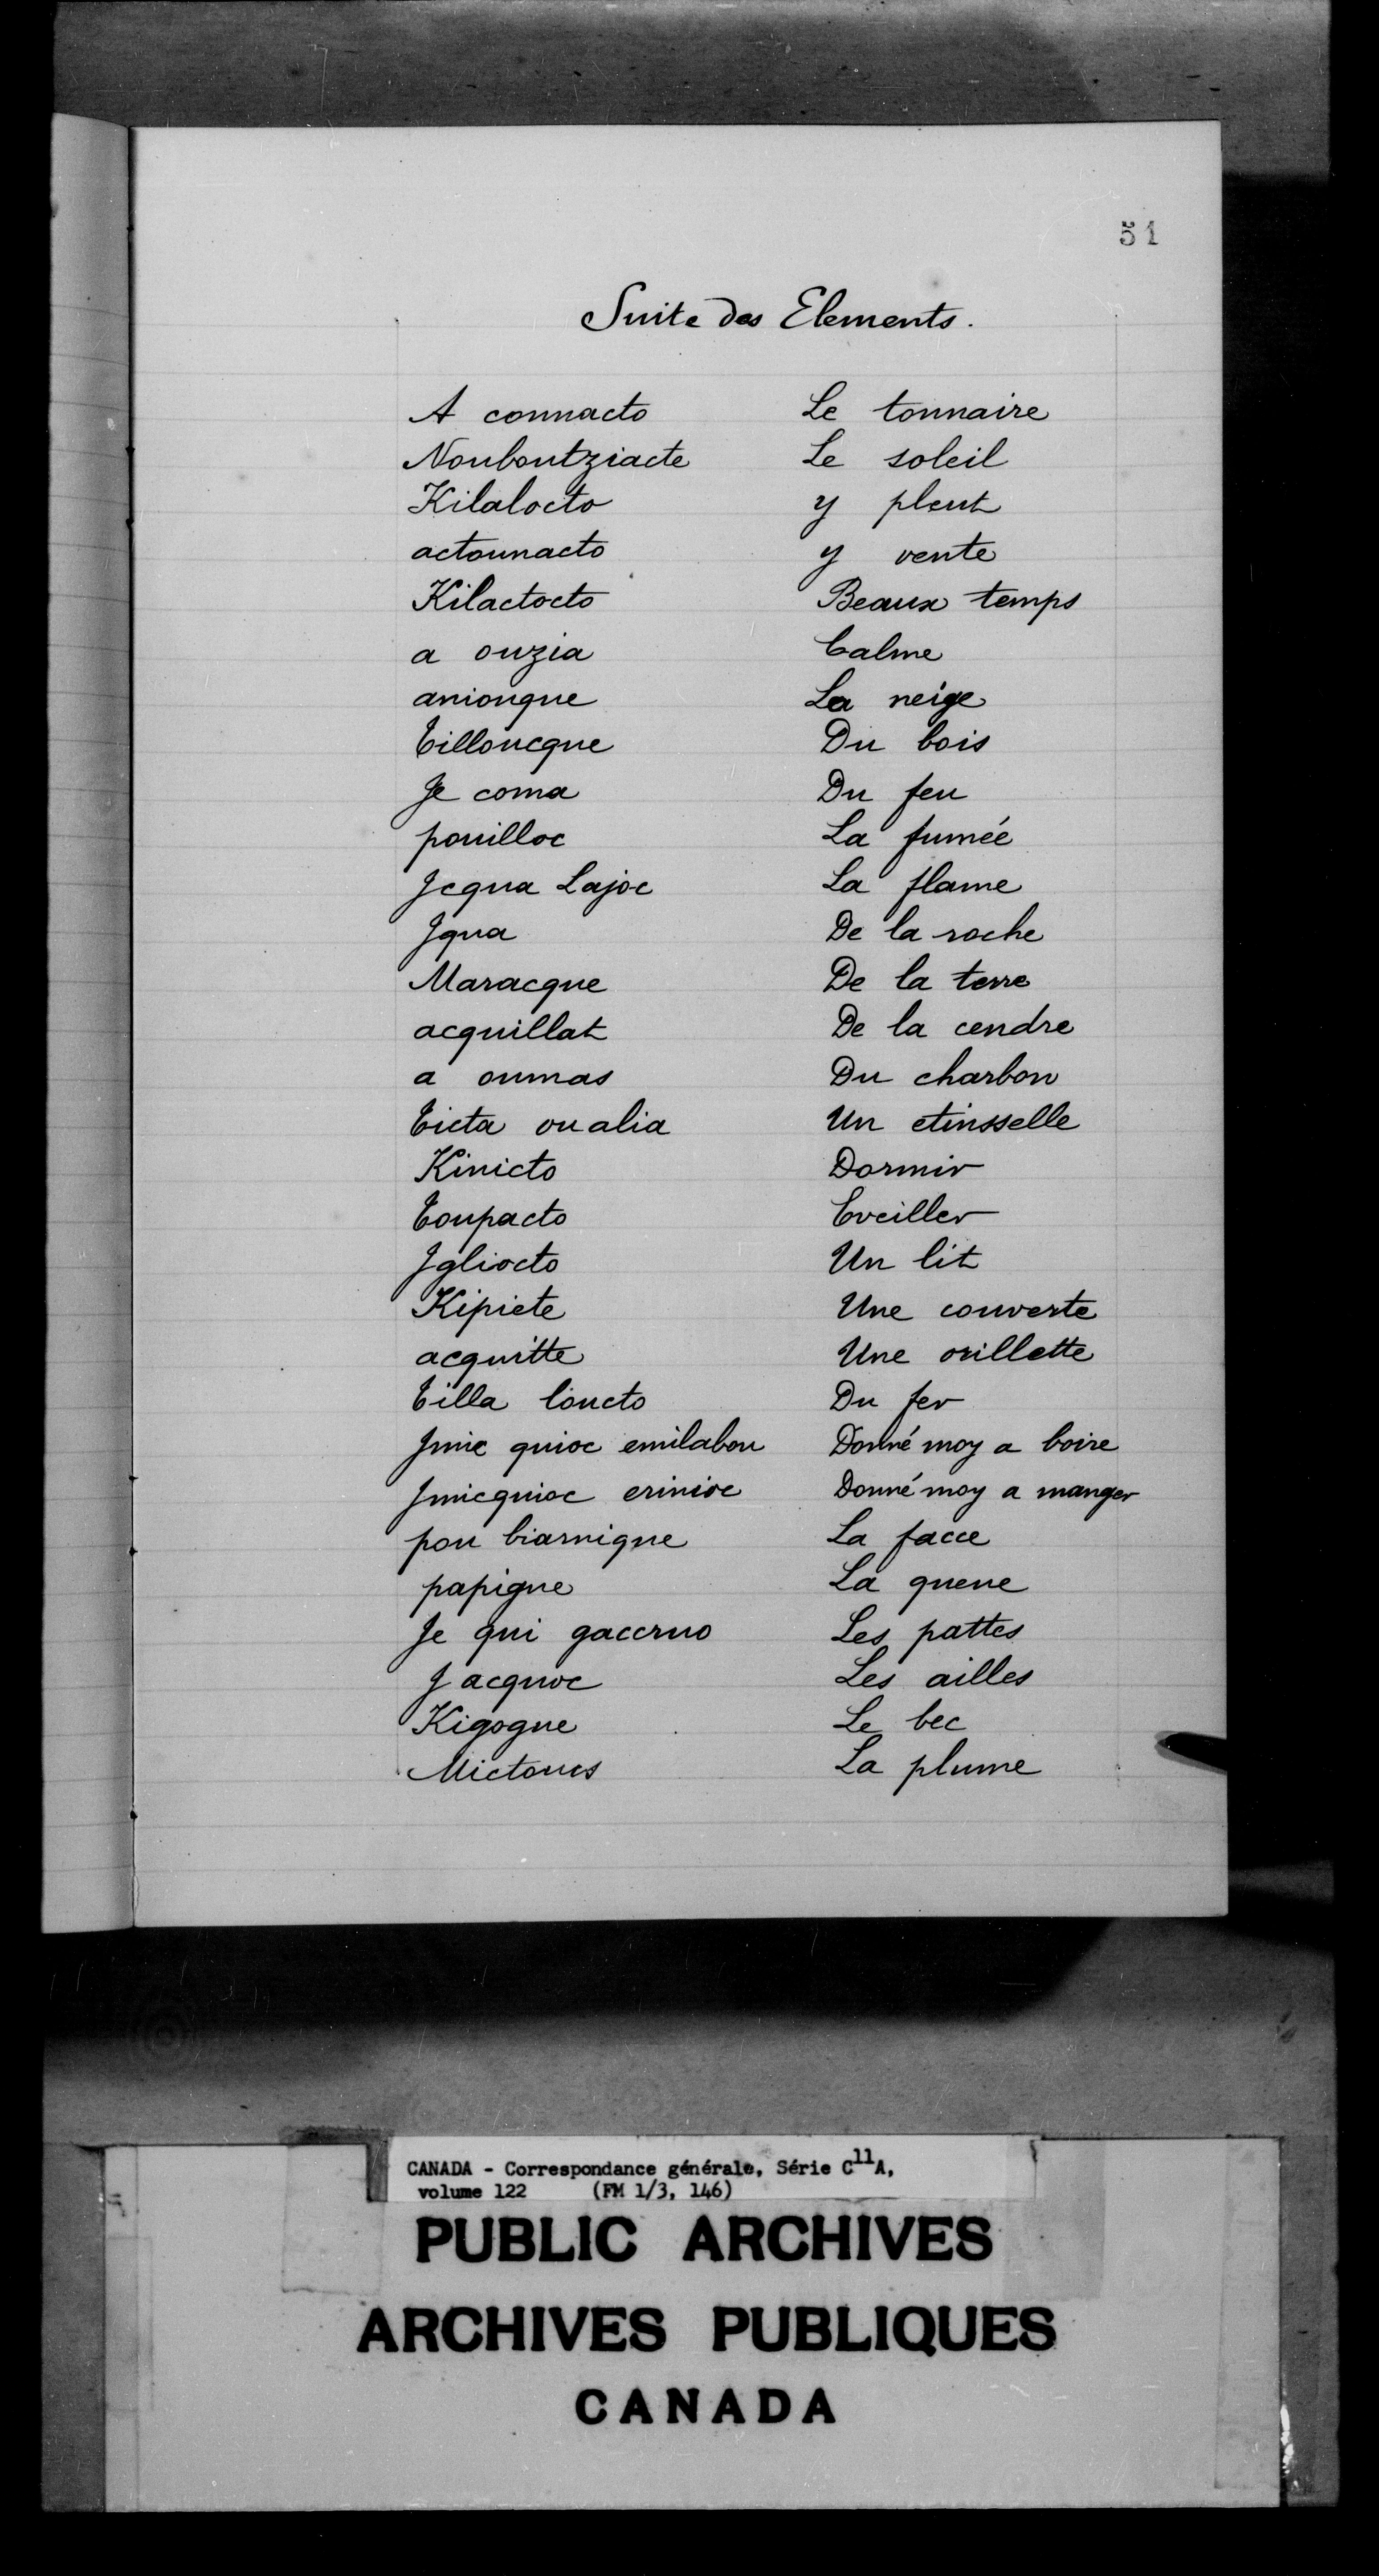 51
Suite des Elements.
A connacto Le tonnaire
Nouboutziacte Le soleil
Kilalocto y pleut
actounacto y vente
Kilactocto Beaux temps
a ouzia Calme
aniougue La neige
Tilloucque Du bois
Je coma Du feu
pouilloc La fumée
Jcqua Lajoc La flame
Jqua De la roche
Maracque De la terre
acquillat De la cendre
a oumas Du charbon
Ticta oualia Un etinsselle
Kinicto Dormir
Toupacto Eveiller
Jgliocto Un lit
Kipiete Une couverte
acquitte Une orillette
Tilla loucto Du fer
Jmic quioc emilabou Donné moy a boire
Jmicquioc erinioc Donné moy a manger
pou biarnigue La facce
papigue La queue
Je qui gaccruo Les pattes
J acquoc Les ailles
Kigogue Le bec
Mictoucs La plume
CANADA - Correspondance générale, Série C11A,
volume 122 (FM 1/3, 146)
PUBLIC ARCHIVES
ARCHIVES PUBLIQUES
CANADA